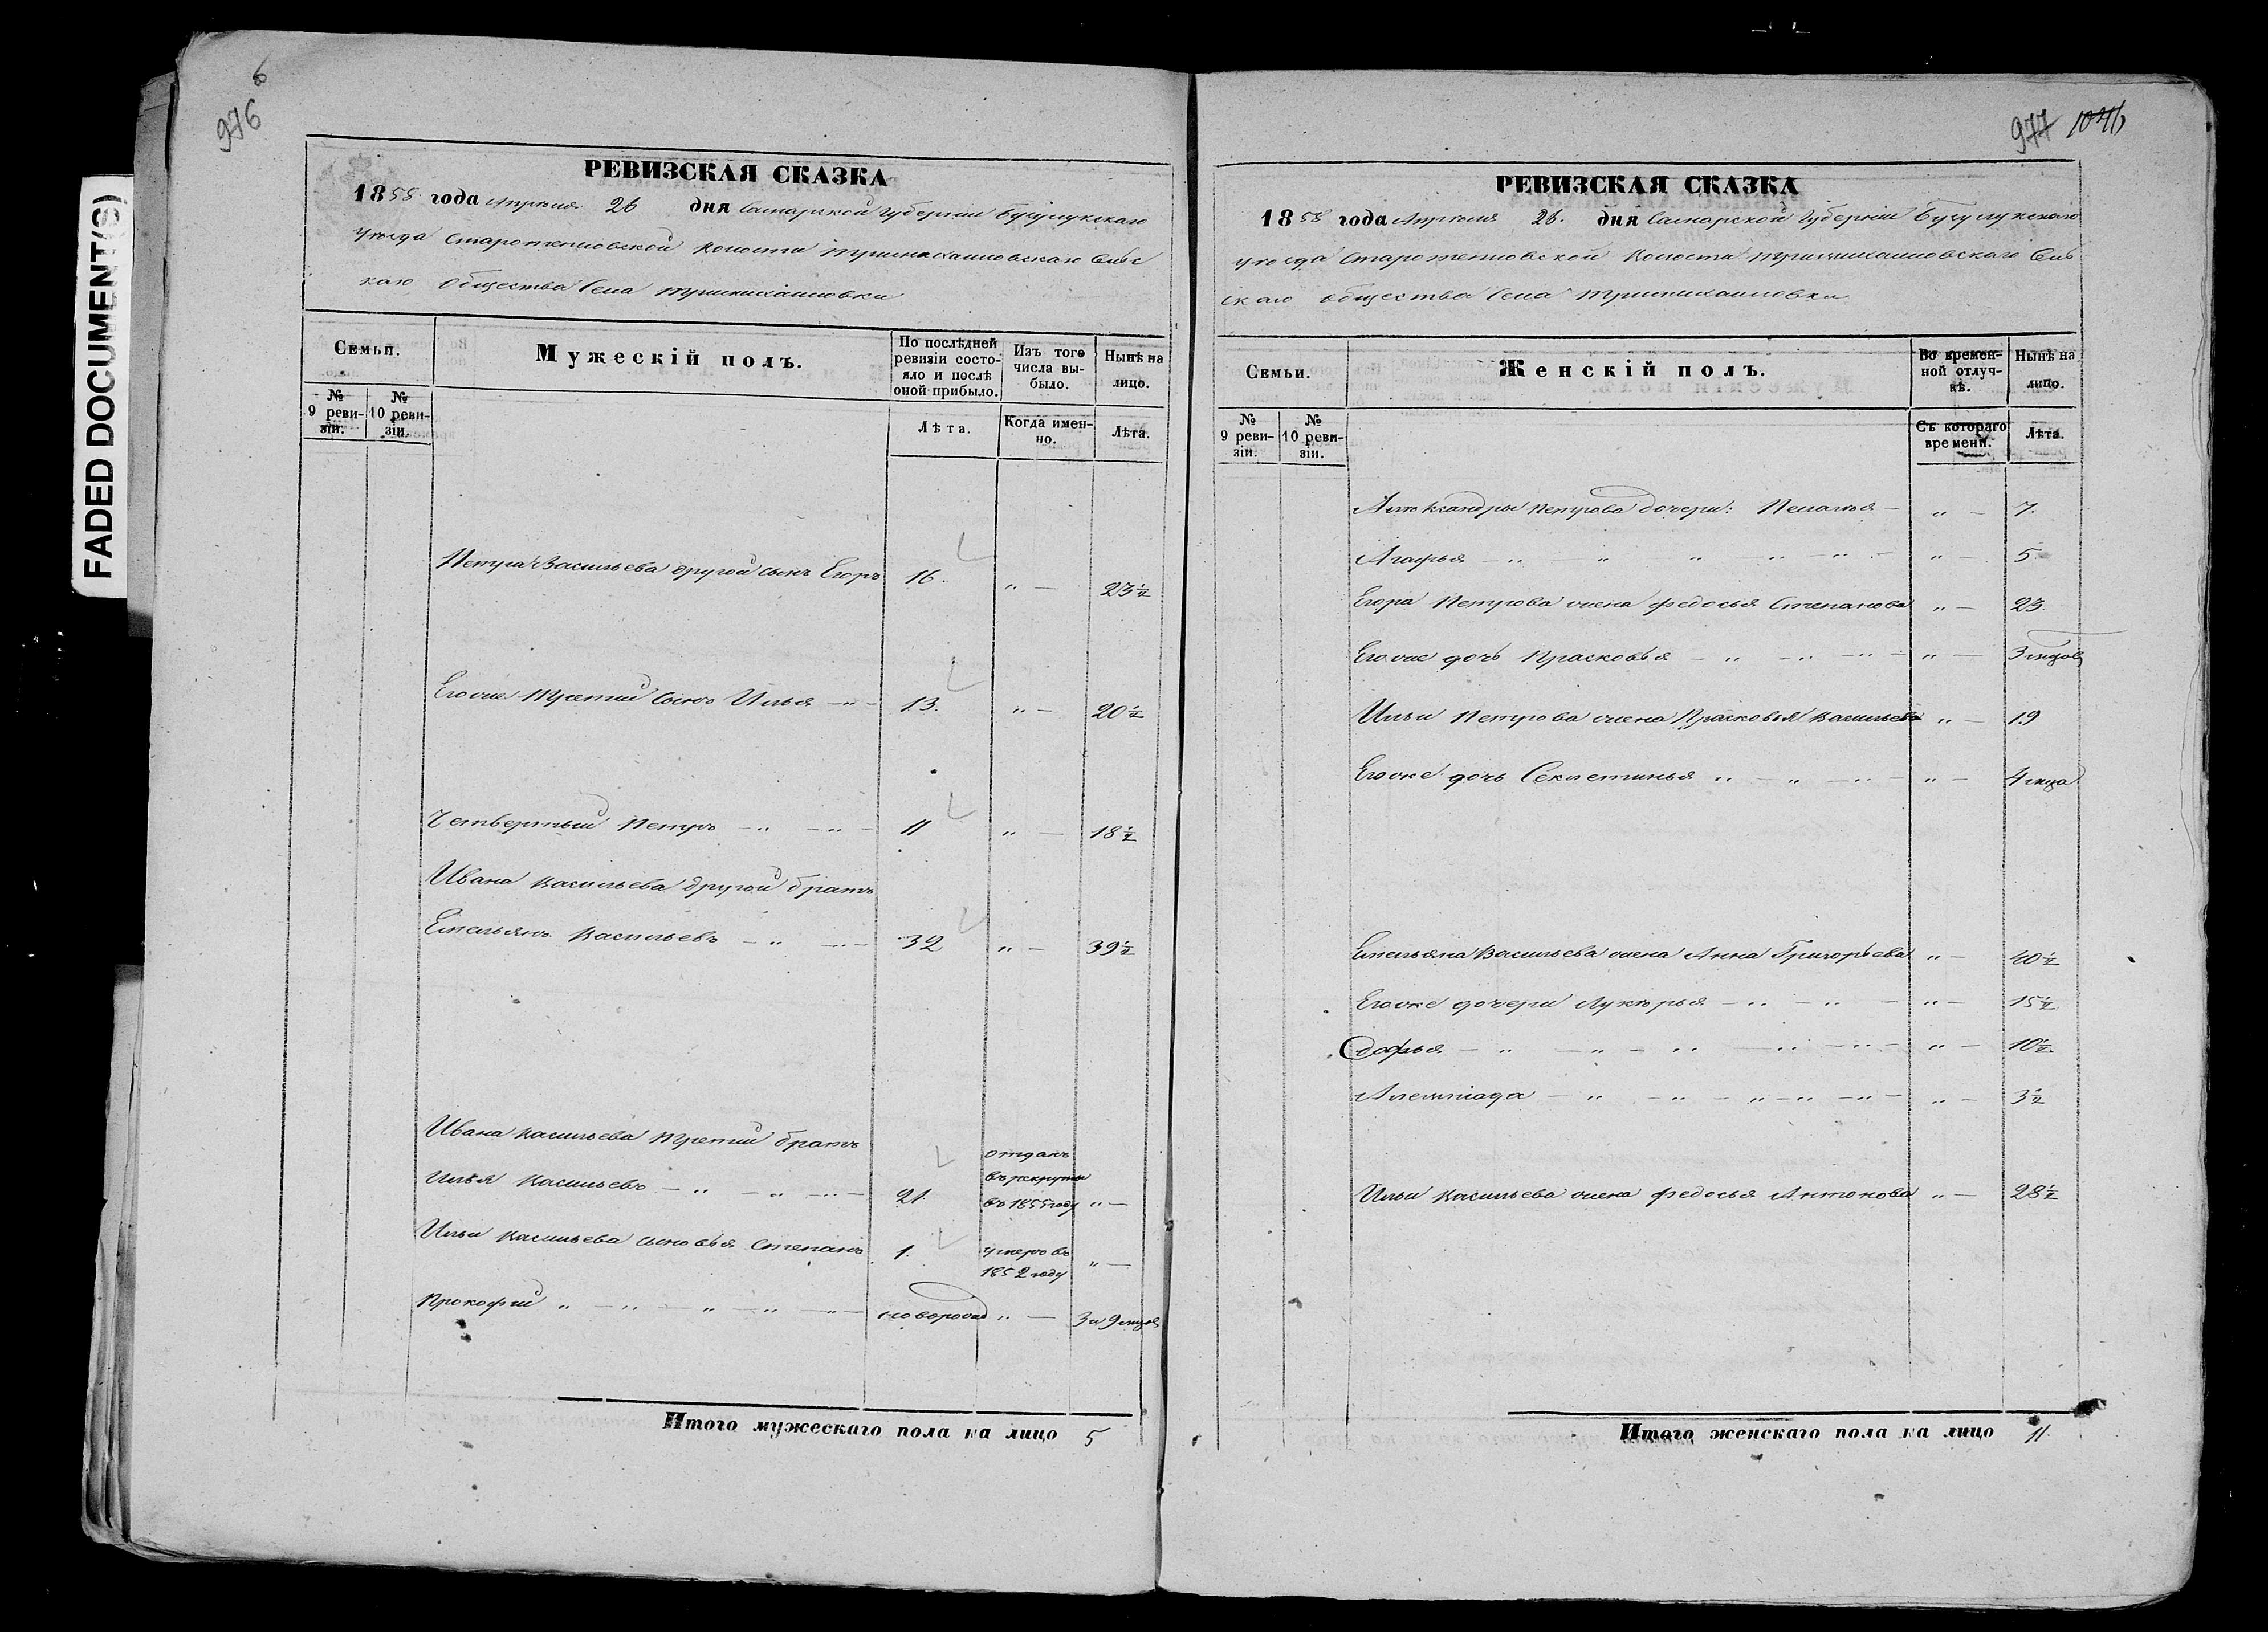 FADED DOCUMENT(S)
976
РЕВИЗСКАЯ СКАЗКА
1858 года Апреля 26 дня Самарской Губернии Бузулукскаго
уезда Старотепловской волости Трисмихаиловскаго Сель
скаго Общества Села
Семьи.
Мужескій полъ.
По послѣдней ревизіи состояло и послѣ оной прибыло.
Изъ того числа выбыло.
Нынѣ на лицо.
№ 9 ревизіи.
№ 10 ревизіи.
Лѣта.
Когда именно.
Лѣта.
Петра Васильева другой сынъ Егоръ 16. „ — 23½
Егоже третий сынъ Илья — „ — 13. „ — 20½
Четвертый Петръ — „ — „ — 11 „ — 18½
Ивана Васильева другой братъ
Емельянъ Васильевъ — „ — 32 „ — 39½
Ивана Васильева третий братъ
Илья Васильевъ — „ — „ — 21. отданъ въ рекруты въ 1855 году „ —
Ильи Васильева сыновья Степанъ 1. умеръ въ 1852 году „ —
Прокофий „ — „ — „ — „ — новорожд „ — 3 и 9 мцов
Итого мужескаго пола на лицо 5
977 1046
РЕВИЗСКАЯ СКАЗКА
1858 года Апреля 26. дня Самарской Губернии Бузулукскаго
уезда Старотепловской Волости Сель
скаго общества Села
Семьи.
Женскій полъ.
Во временной отлучкѣ.
Нынѣ на лицо.
№ 9 ревизіи.
№ 10 ревизіи.
Съ котораго времени.
Лѣта.
Александры Петрова дочери: Пелагея — „ — 7.
Агафья — „ — „ „ — „ — „ — „ — 5.
Егора Петрова жена Федосья Степанова „ — 23.
Егоже дочь Прасковья — „ — „ — „ — „ — 3 мцов
Ильи Петрова жена Прасковья Васильева „ — 19
Егоже дочь Секлетинья „ — „ — „ — „ — 4 мца
Емельяна Васильева жена Анна Григорьева „ — 40½
Егоже дочери Лукерья — „ — „ — „ — 15½
Софья — „ — „ — „ — „ — „ — „ — 10½.
Алемпіада — „ — „ — „ — „ — „ — „ — 3½
Ильи Васильева жена Федосья Антонова „ — 28½
Итого женскаго пола на лицо 11.